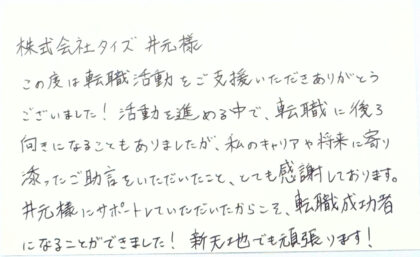 株式会社タイズ 井元様
この度は転職活動をご支援いただきありがとう
ございました！活動を進める中で、転職に後ろ
向きになることもありましたが、私のキャリアや将来に寄り
添ったご助言をいただいたこと、とても感謝しております。
井元様にサポートしていただいたからこそ、転職成功者
になることができました！新天地でも頑張ります！